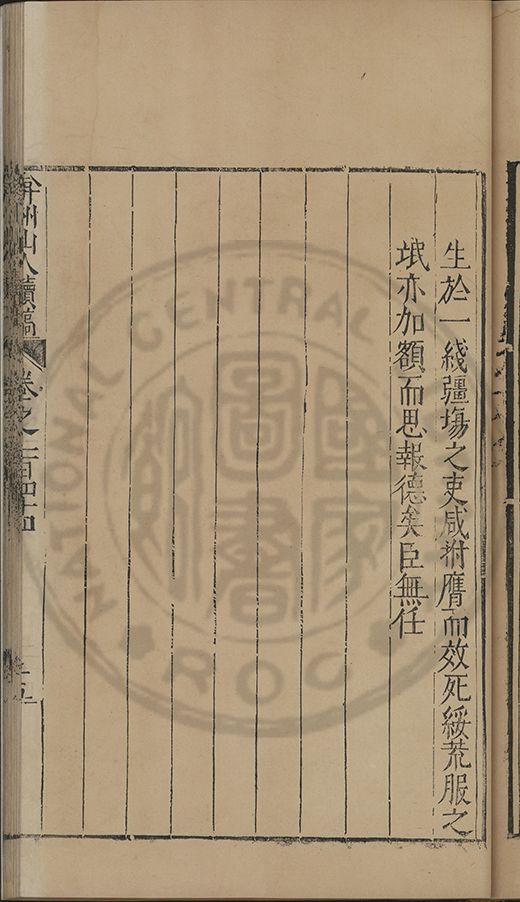 生於一綫疆塲之吏咸拊膺而效死綏荒服之
氓亦加額而思報德矣臣無任
弇州山人續稿
卷之一百四十四
十五
NATIONAL CENTRAL
ROC
國家
圖書